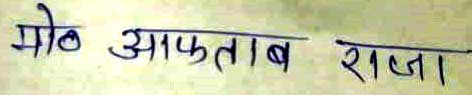 मो० आफताब राजा